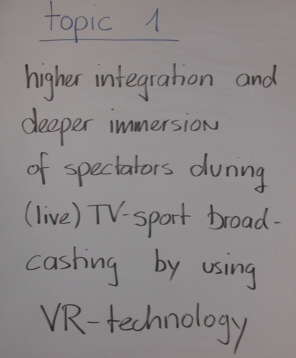 topic 1
higher integration and
deeper immersion
of spectators during
(live) TV-sport broad-
casting by using
VR-technology